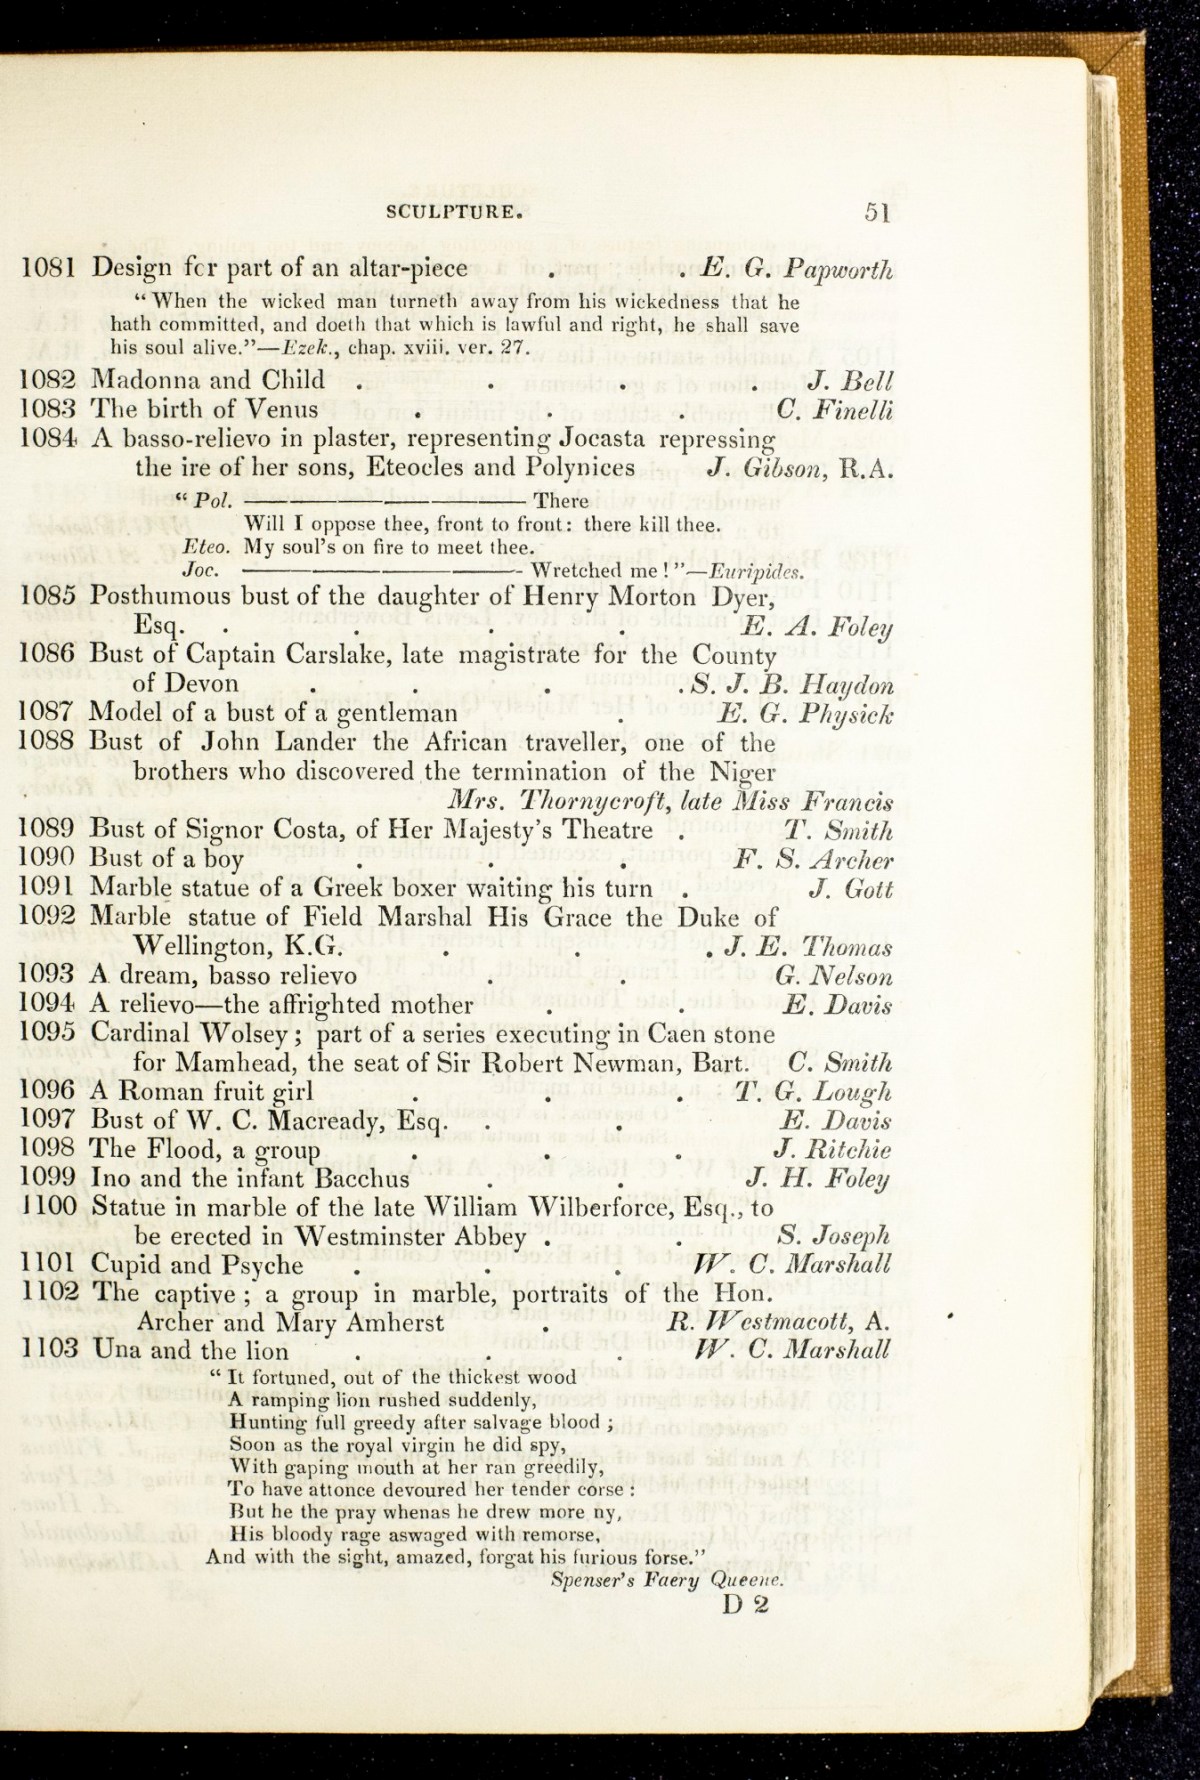 SCULPTURE. 51
1081 Design for part of an altar-piece . . E. G. Papworth
“ When the wicked man turneth away from his wickedness that he
hath committed, and doeth that which is lawful and right, he shall save
his soul alive.”—Ezek., chap. xviii. ver. 27.
1082 Madonna and Child . . . . J. Bell
1083 The birth of Venus . . . C. Finelli
1084 A basso-relievo in plaster, representing Jocasta repressing
the ire of her sons, Eteocles and Polynices J. Gibson, R.A.
“ Pol. ———————— There
Will I oppose thee, front to front: there kill thee.
Eteo. My soul's on fire to meet thee.
Joc. ———————— Wretched me ! ”—Euripides.
1085 Posthumous bust of the daughter of Henry Morton Dyer,
Esq. . . . . E. A. Foley
1086 Bust of Captain Carslake, late magistrate for the County
of Devon . . . . S. J. B. Haydon
1087 Model of a bust of a gentleman . E. G. Physick
1088 Bust of John Lander the African traveller, one of the
brothers who discovered the termination of the Niger
Mrs. Thornycroft, late Miss Francis
1089 Bust of Signor Costa, of Her Majesty's Theatre . T. Smith
1090 Bust of a boy . . . F. S. Archer
1091 Marble statue of a Greek boxer waiting his turn . J. Gott
1092 Marble statue of Field Marshal His Grace the Duke of
Wellington, K.G. . . . J. E. Thomas
1093 A dream, basso relievo . . G. Nelson
1094 A relievo—the affrighted mother . . E. Davis
1095 Cardinal Wolsey ; part of a series executing in Caen stone
for Mamhead, the seat of Sir Robert Newman, Bart. C. Smith
1096 A Roman fruit girl . . . T. G. Lough
1097 Bust of W. C. Macready, Esq. . . E. Davis
1098 The Flood, a group . . . J. Ritchie
1099 Ino and the infant Bacchus . . J. H. Foley
1100 Statue in marble of the late William Wilberforce, Esq., to
be erected in Westminster Abbey . . S. Joseph
1101 Cupid and Psyche . . . W. C. Marshall
1102 The captive ; a group in marble, portraits of the Hon.
Archer and Mary Amherst . R. Westmacott, A.
1103 Una and the lion . . . W. C. Marshall
“ It fortuned, out of the thickest wood
A ramping lion rushed suddenly,
Hunting full greedy after salvage blood ;
Soon as the royal virgin he did spy,
With gaping mouth at her ran greedily,
To have attonce devoured her tender corse :
But he the pray whenas he drew more ny,
His bloody rage aswaged with remorse,
And with the sight, amazed, forgat his furious forse.”
Spenser's Faery Queene.
D 2